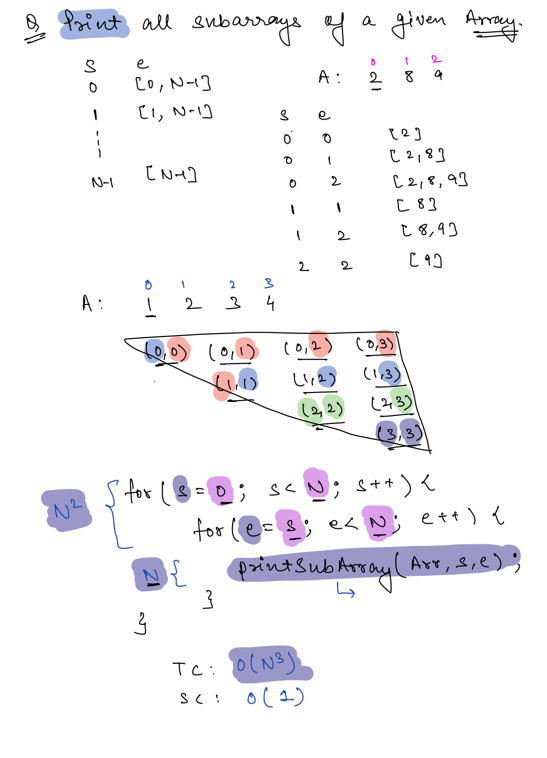 Q Print all subarrays of a given Array.
s e
0 [0, N-1]
1 [1, N-1]
N-1 [N-1]
0 1 2
A: 2 8 9
s e
0 0 [2]
0 1 [2,8]
0 2 [2,8,9]
1 1 [8]
1 2 [8,9]
2 2 [9]
0 1 2 3
A: 1 2 3 4
(0,0) (0,1) (0,2) (0,3)
(1,1) (1,2) (1,3)
(2,2) (2,3)
(3,3)
N² { for( s = 0; s < N; s++) {
for( e = s; e < N; e++) {
N { printSubArray(Arr, s, e);
}
}
TC: O(N³)
SC: O(1)